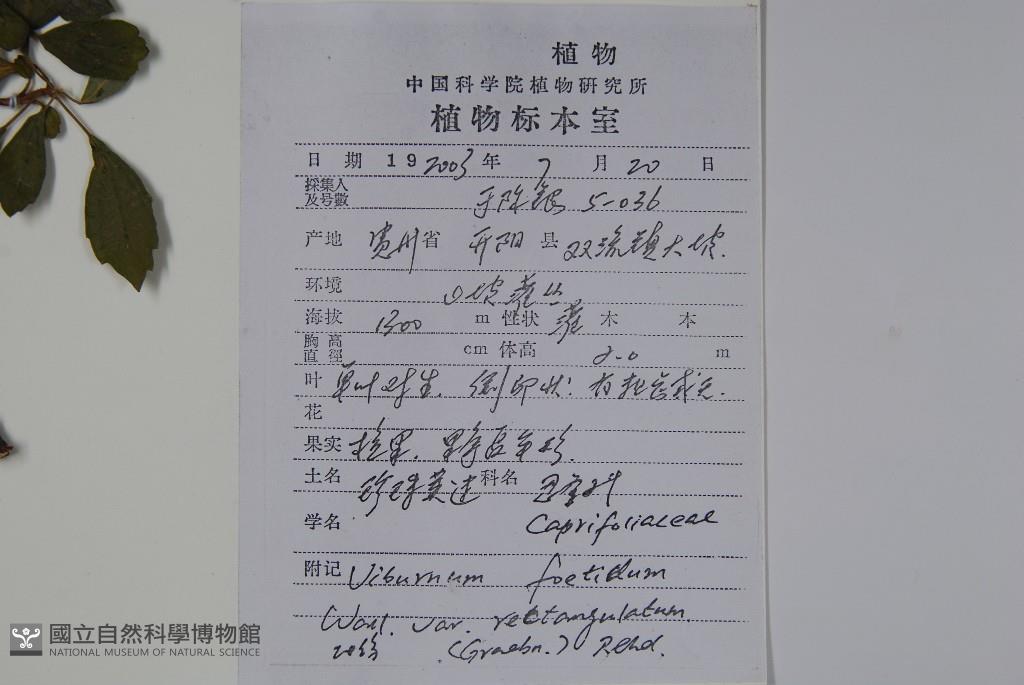 植物
中国科学院植物研究所
植物标本室
日期 19 2003 年 7 月 20 日
採集人及号數 5-036
产地 贵州省 开阳县 双流镇大坡.
环境 山坡灌丛
海拔 1300 m 性状 灌 木 本
胸高直徑 cm 体高 2.0 m
叶 单叶对生. 倒卵状: 有托叶或无.
花
果实 核果.
土名 珍珠荚迷 科名 忍冬科
学名 Caprifoliaceae
附记 Viburnum foetidum
Wall. var. rectangulatum.
(Graebn.) Rehd.
國立自然科學博物館
NATIONAL MUSEUM OF NATURAL SCIENCE